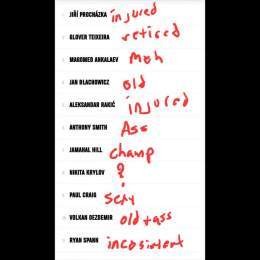 JIŘÍ PROCHÁZKA injured
GLOVER TEIXEIRA retired
MAGOMED ANKALAEV Meh
JAN BLACHOWICZ old
ALEKSANDAR RAKIĆ injured
ANTHONY SMITH Ass
JAMAHAL HILL champ
NIKITA KRYLOV ?
PAUL CRAIG sexy
VOLKAN OEZDEMIR old + ass
RYAN SPANN inconsistent